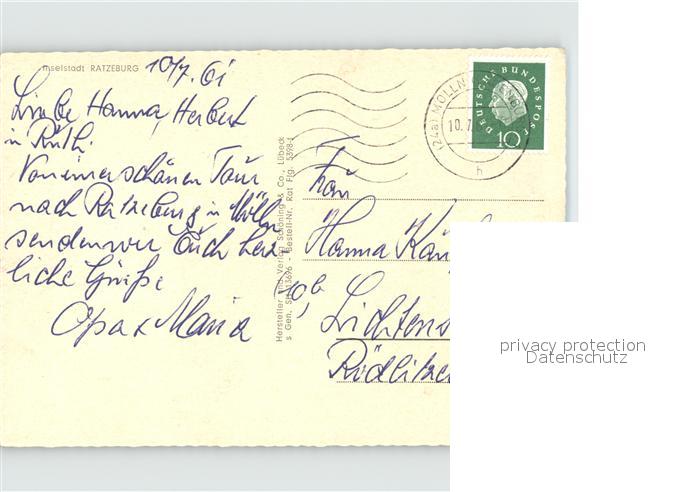 Inselstadt RATZEBURG
10/7. 61
Liebe Hanna, Herbert
u Ruth.
Von einer schönen Tour
nach Ratzeburg u Mölln
senden wir Euch herz
liche Grüße
Opa & Maria
Hersteller und Verlag Schöning & Co., Lübeck
s Gen. SH 13696 - Bestell-Nr. Rat Flg. 5398-l
(24a) MÖLLN
10. 7.
h
DEUTSCHE BUNDESPOST
10
Frau
Hanna
Lichtens
privacy protection
Datenschutz